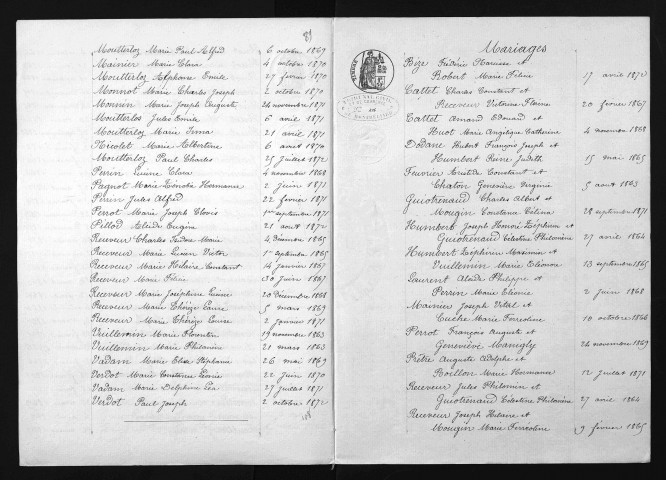 81
Moutterloz Marie Paul Alfred 6 octobre 1869
Mainier Marie Clara 4 octobre 1870
Moutterloz Alphonse Emile 27 février 1870
Monnot Marie Charles Joseph 2 octobre 1870
Monnin Marie Joseph Auguste 24 novembre 1871
Moutterloz Jules Emile 6 avril 1871
Moutterloz Marie Irma 21 avril 1871
Nicolet Marie Albertine 6 avril 1872
Moutterloz Paul Charles 25 juillet 1872
Perrin Clara 4 novembre 1868
Pagnot Marie Hermance 2 juin 1871
Perrin Jules Alfred 22 février 1871
Perrot Marie Joseph Clovis 1er septembre 1871
Pillod Eugène 21 août 1872
Receveur Charles Marie 4 décembre 1865
Receveur Marie Lucien Victor 1er septembre 1865
Receveur Marie Hilaire Constant 14 janvier 1867
Receveur Marie 30 juin 1867
Receveur Marie Joséphine 20 décembre 1868
Receveur Marie Thérèse Laure 5 mars 1869
Receveur Marie Thérèse Laure 2 janvier 1871
Vuillemin Marie 19 novembre 1863
Vuillemin Marie Philomène 21 mars 1863
Vadam Marie Elise Stéphanie 26 mai 1869
Verdot Marie Constance Léonie 22 juin 1870
Vadam Marie Delphine Léa 27 juillet 1871
Verdot Paul Joseph 2 octobre 1872
Mariages
Bize Frédéric Narcisse et
Robert Marie Féline 17 avril 1872
Cattet Charles Constant et
Receveur Victorine 20 février 1867
Cattet Amand Edouard et
Huot Marie Angélique Catherine 4 novembre 1868
Dodane Hubert François Joseph et
Humbert Reine Judith 15 mai 1865
Feuvrier Aristide Constant et
Chaton Geneviève Virginie 5 août 1863
Guiotrenaud Charles Albert et
Mougin Constance Célina 28 septembre 1871
Humbert Joseph Honoré Zéphirin et
Guiotrenaud Célestine Philomène 27 avril 1864
Humbert Zéphirin Maximin et
Vuillemin Marie Eléonore 13 septembre 1865
Laurent Aloïde Philippe et
Perrin Marie Elionie 2 juin 1868
Mainier Joseph Vital et
Cuche Marie Ferréoline 10 octobre 1866
Perrot François Auguste et
Geneviève Mamigly 24 novembre 1869
Prêtre Auguste Adolphe et
Boillon Marie Hermance 12 juillet 1871
Receveur Jules Philomin et
Guiotrenaud Célestine Philomène 27 avril 1864
Receveur Joseph Hilaire et
Mougin Marie Ferréoline 9 février 1865